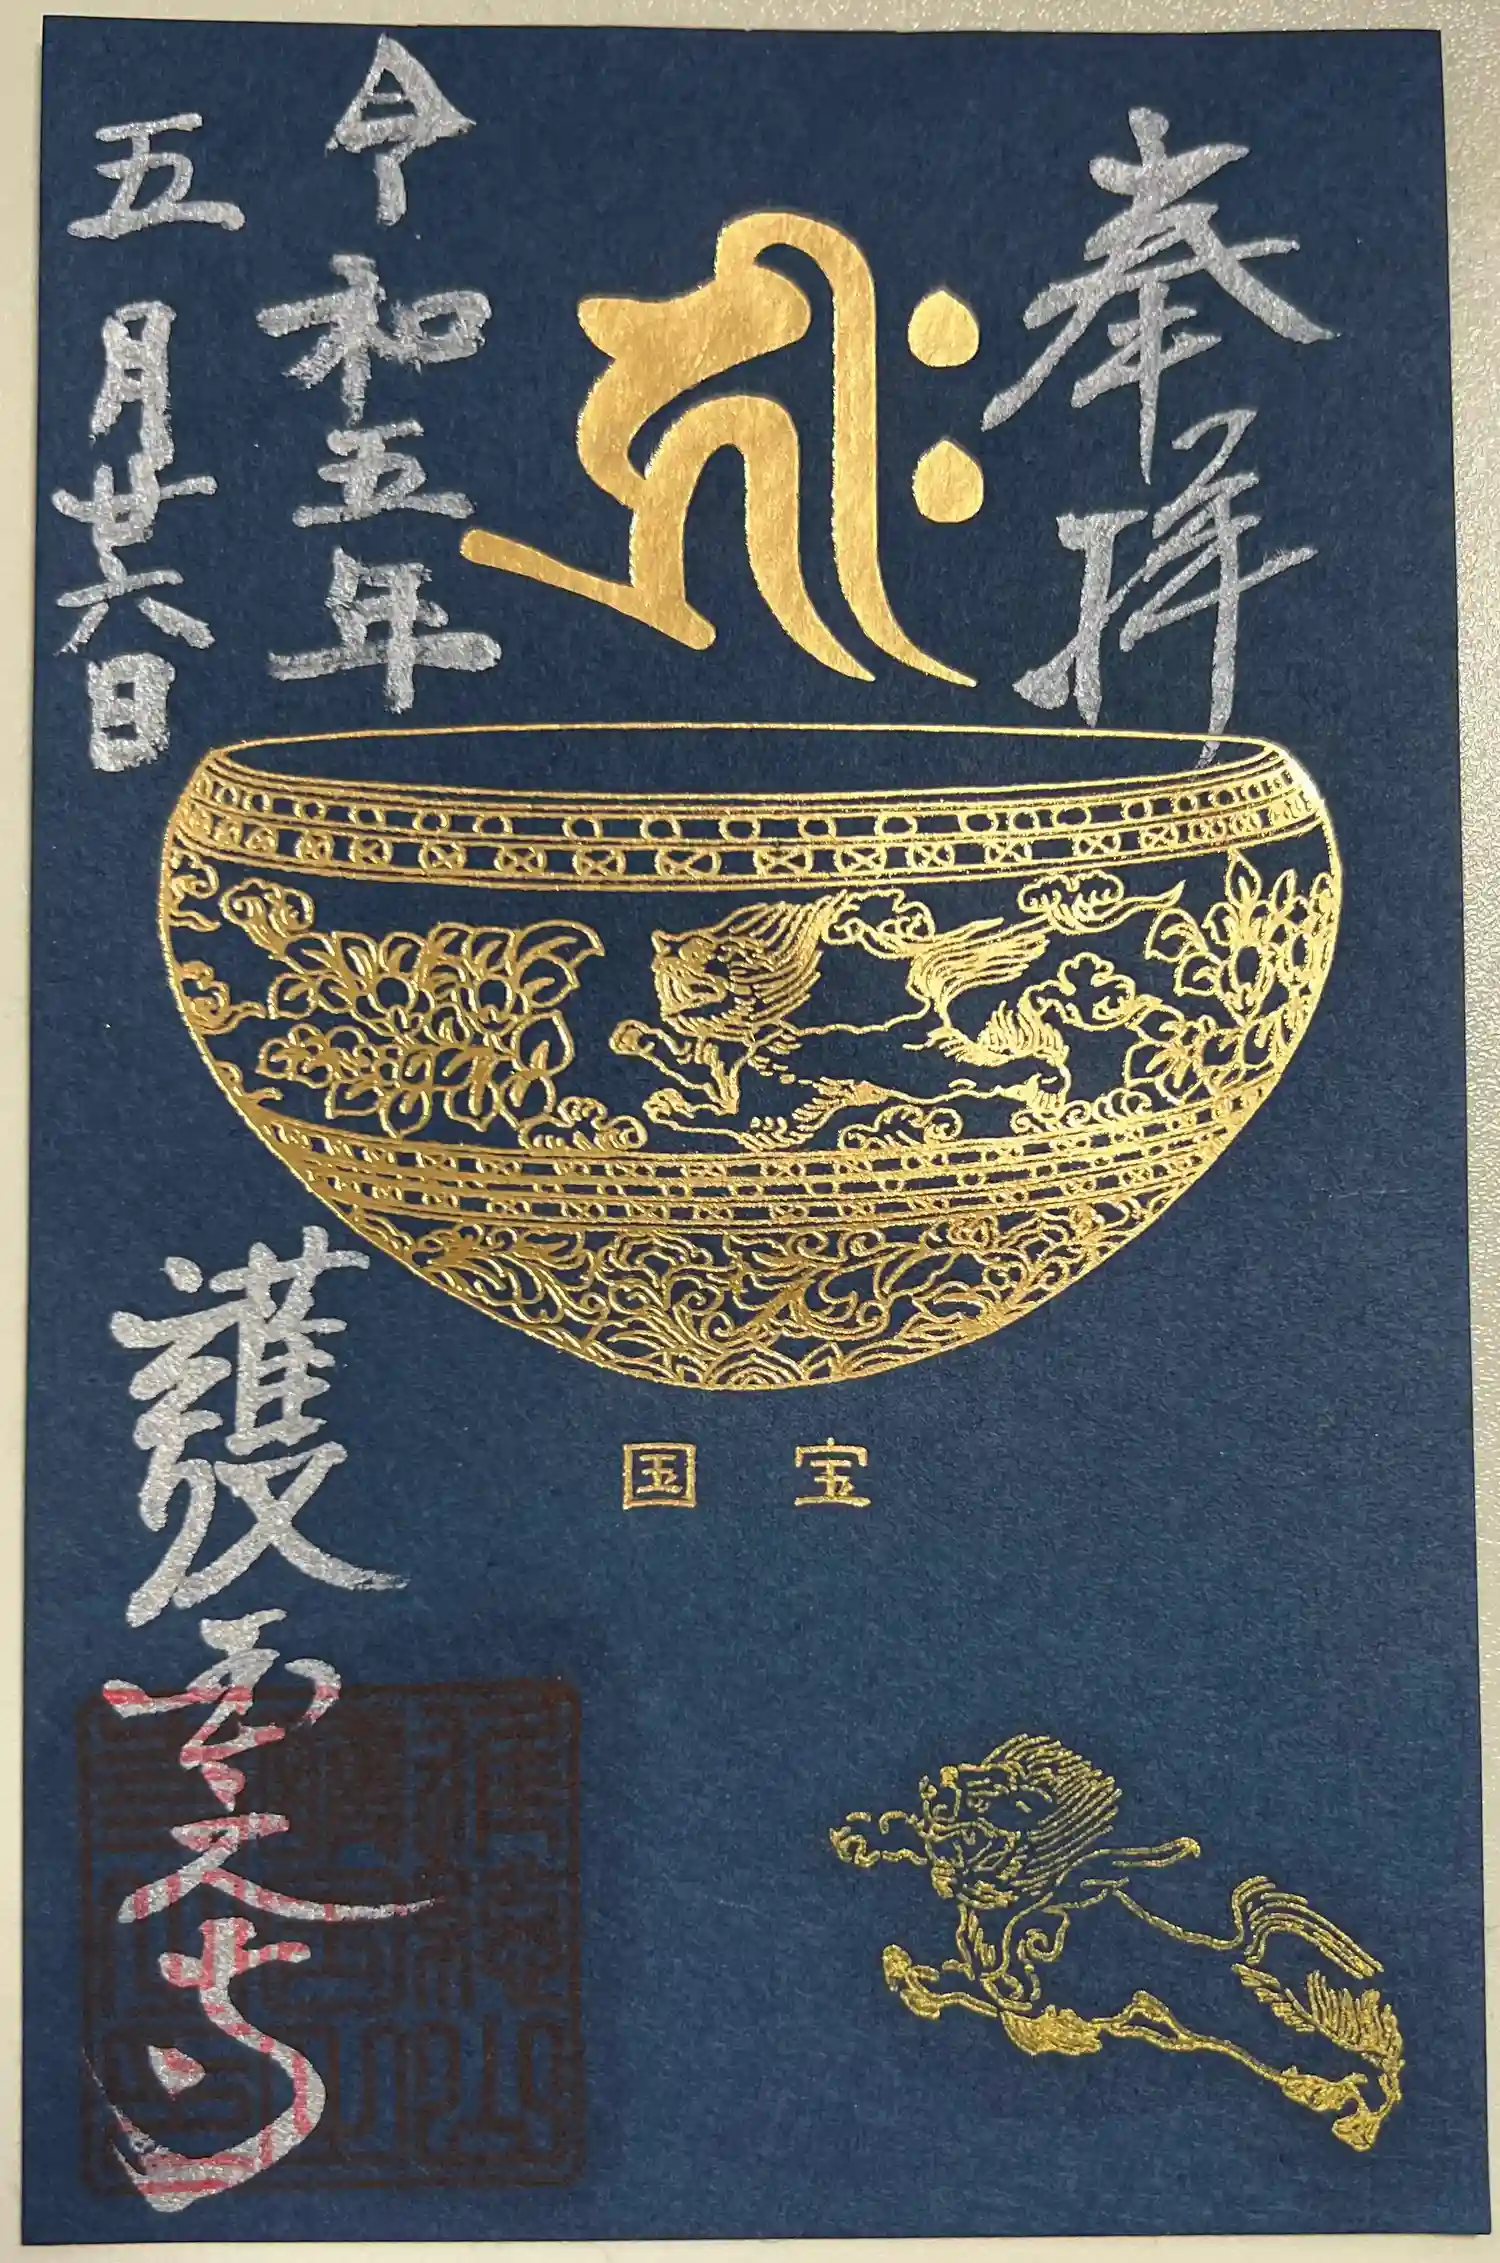 奉拝
キリーク
国宝
令和五年
五月廿六日
護国之寺